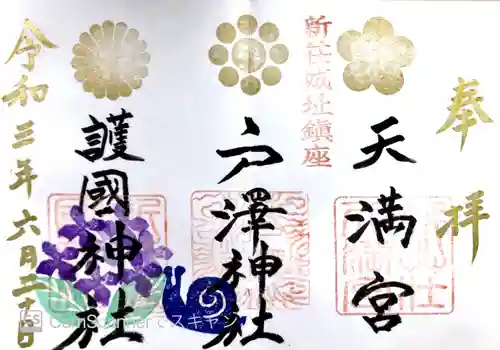 奉拝
天満宮
新荘城址鎮座
戸澤神社
護國神社
令和三年六月二十日
CamScannerでスキャン